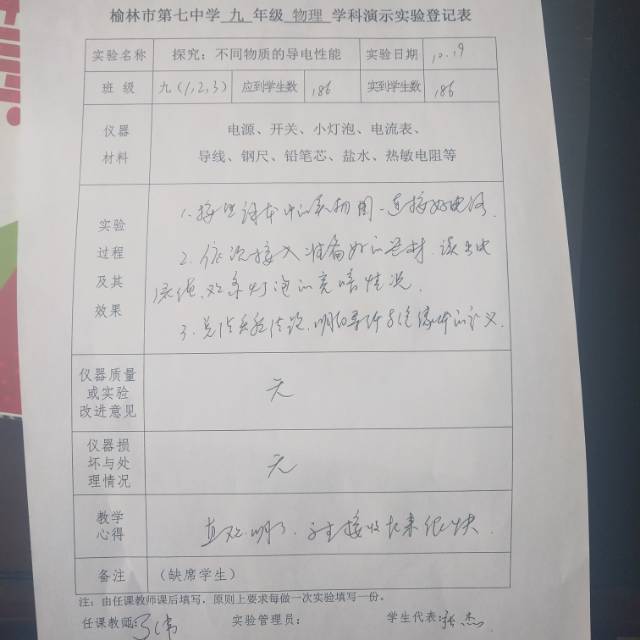 榆林市第七中学 九 年级 物理 学科演示实验登记表
实验名称 探究：不同物质的导电性能 实验日期 10.19
班 级 九（1,2,3） 应到学生数 186 实到学生数 186
仪器
材料
电源、开关、小灯泡、电流表、
导线、钢尺、铅笔芯、盐水、热敏电阻等
实验
过程
及其
效果
1.按照课本中的实物图，连接好电路.
2.依次接入准备好的器材，读出电
流值，观察灯泡的亮暗情况.
3.总结实验结论，明白导体与绝缘体的意义.
仪器质量
或实验
改进意见
无
仪器损
坏与处
理情况
无
教学
心得
直观明了，学生接收起来很快.
备注 （缺席学生）
注：由任课教师课后填写，原则上要求每做一次实验填写一份。
任课教师: 实验管理员: 学生代表: